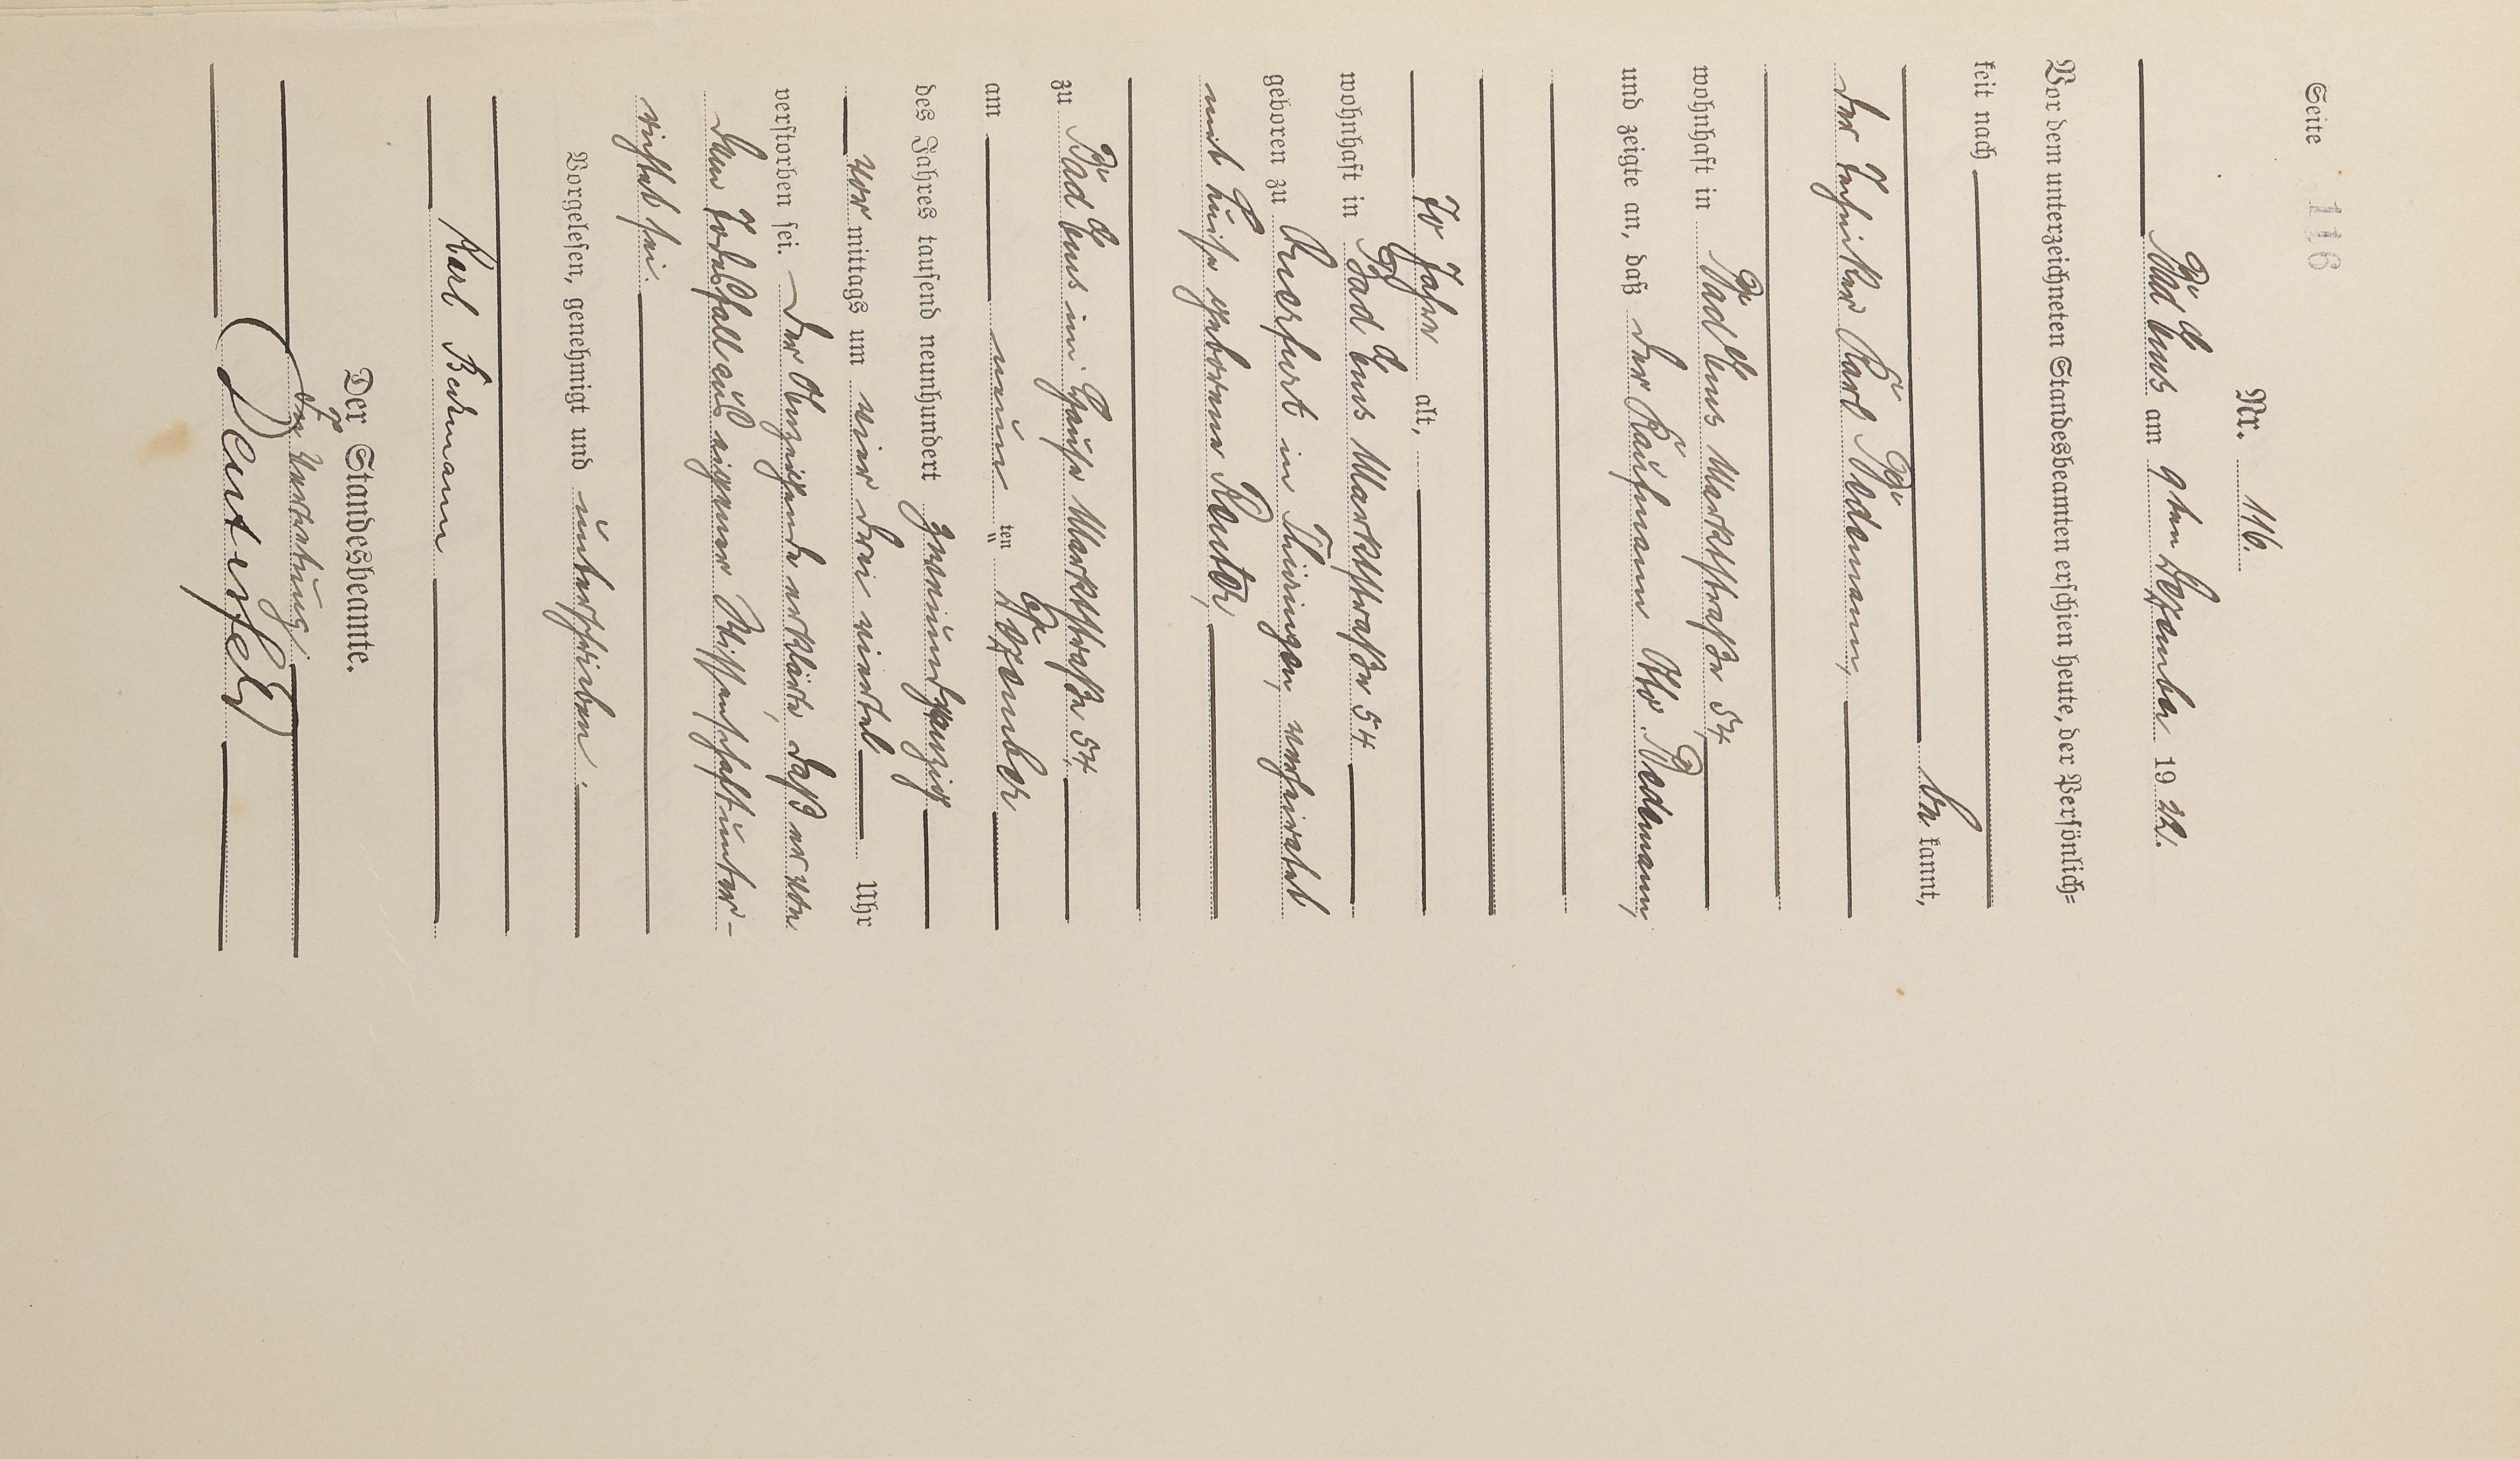 Seite 116
Nr. 116.
Bad Ems am 9ten Dezember 1922.
Vor dem unterzeichneten Standesbeamten erschien heute, der Persönlich=
keit nach
be kannt,
der Techniker Karl Bedemann,
wohnhaft in Bad Ems Marktstraße 54,
und zeigte an, daß der Kaufmann Otto Bedemann,
70 Jahre alt,
wohnhaft in Bad Ems Marktstraße 54
geboren zu Querfurt in Thüringen, verheiratet
mit Luise geborene
zu Bad Ems im Hause Marktstraße 54
am neun ten Dezember
des Jahres tausend neunhundert zweiundzwanzig
vor mittags um vier drei viertel Uhr
verstorben sei. Der Anzeigende erklärte, daß er von
dem Todesfall aus eigener Wissenschaft unter-
richtet sei.
Vorgelesen, genehmigt und unterschrieben.
Karl
Der Standesbeamte.
In Vertretung: